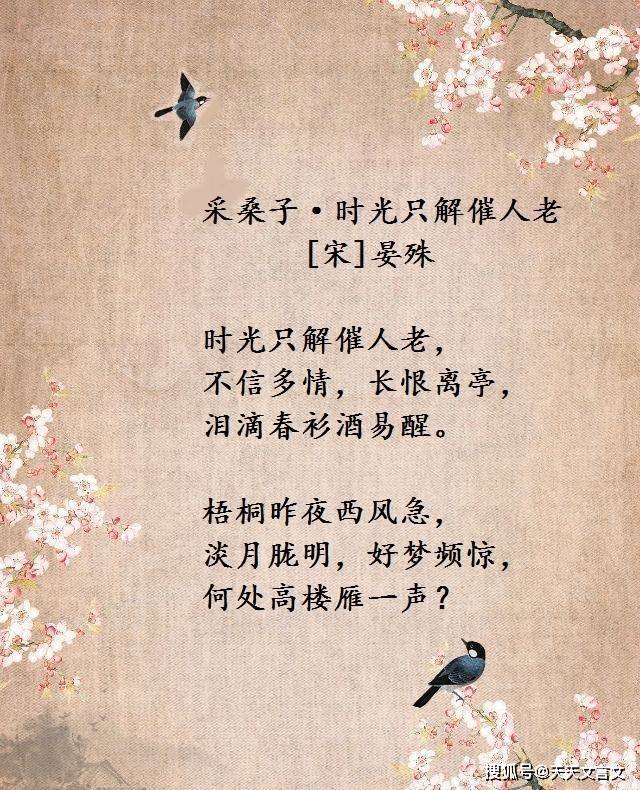 采桑子·时光只解催人老
[宋]晏殊
时光只解催人老，
不信多情，长恨离亭，
泪滴春衫酒易醒。
梧桐昨夜西风急，
淡月胧明，好梦频惊，
何处高楼雁一声？
搜狐号@天天文言文